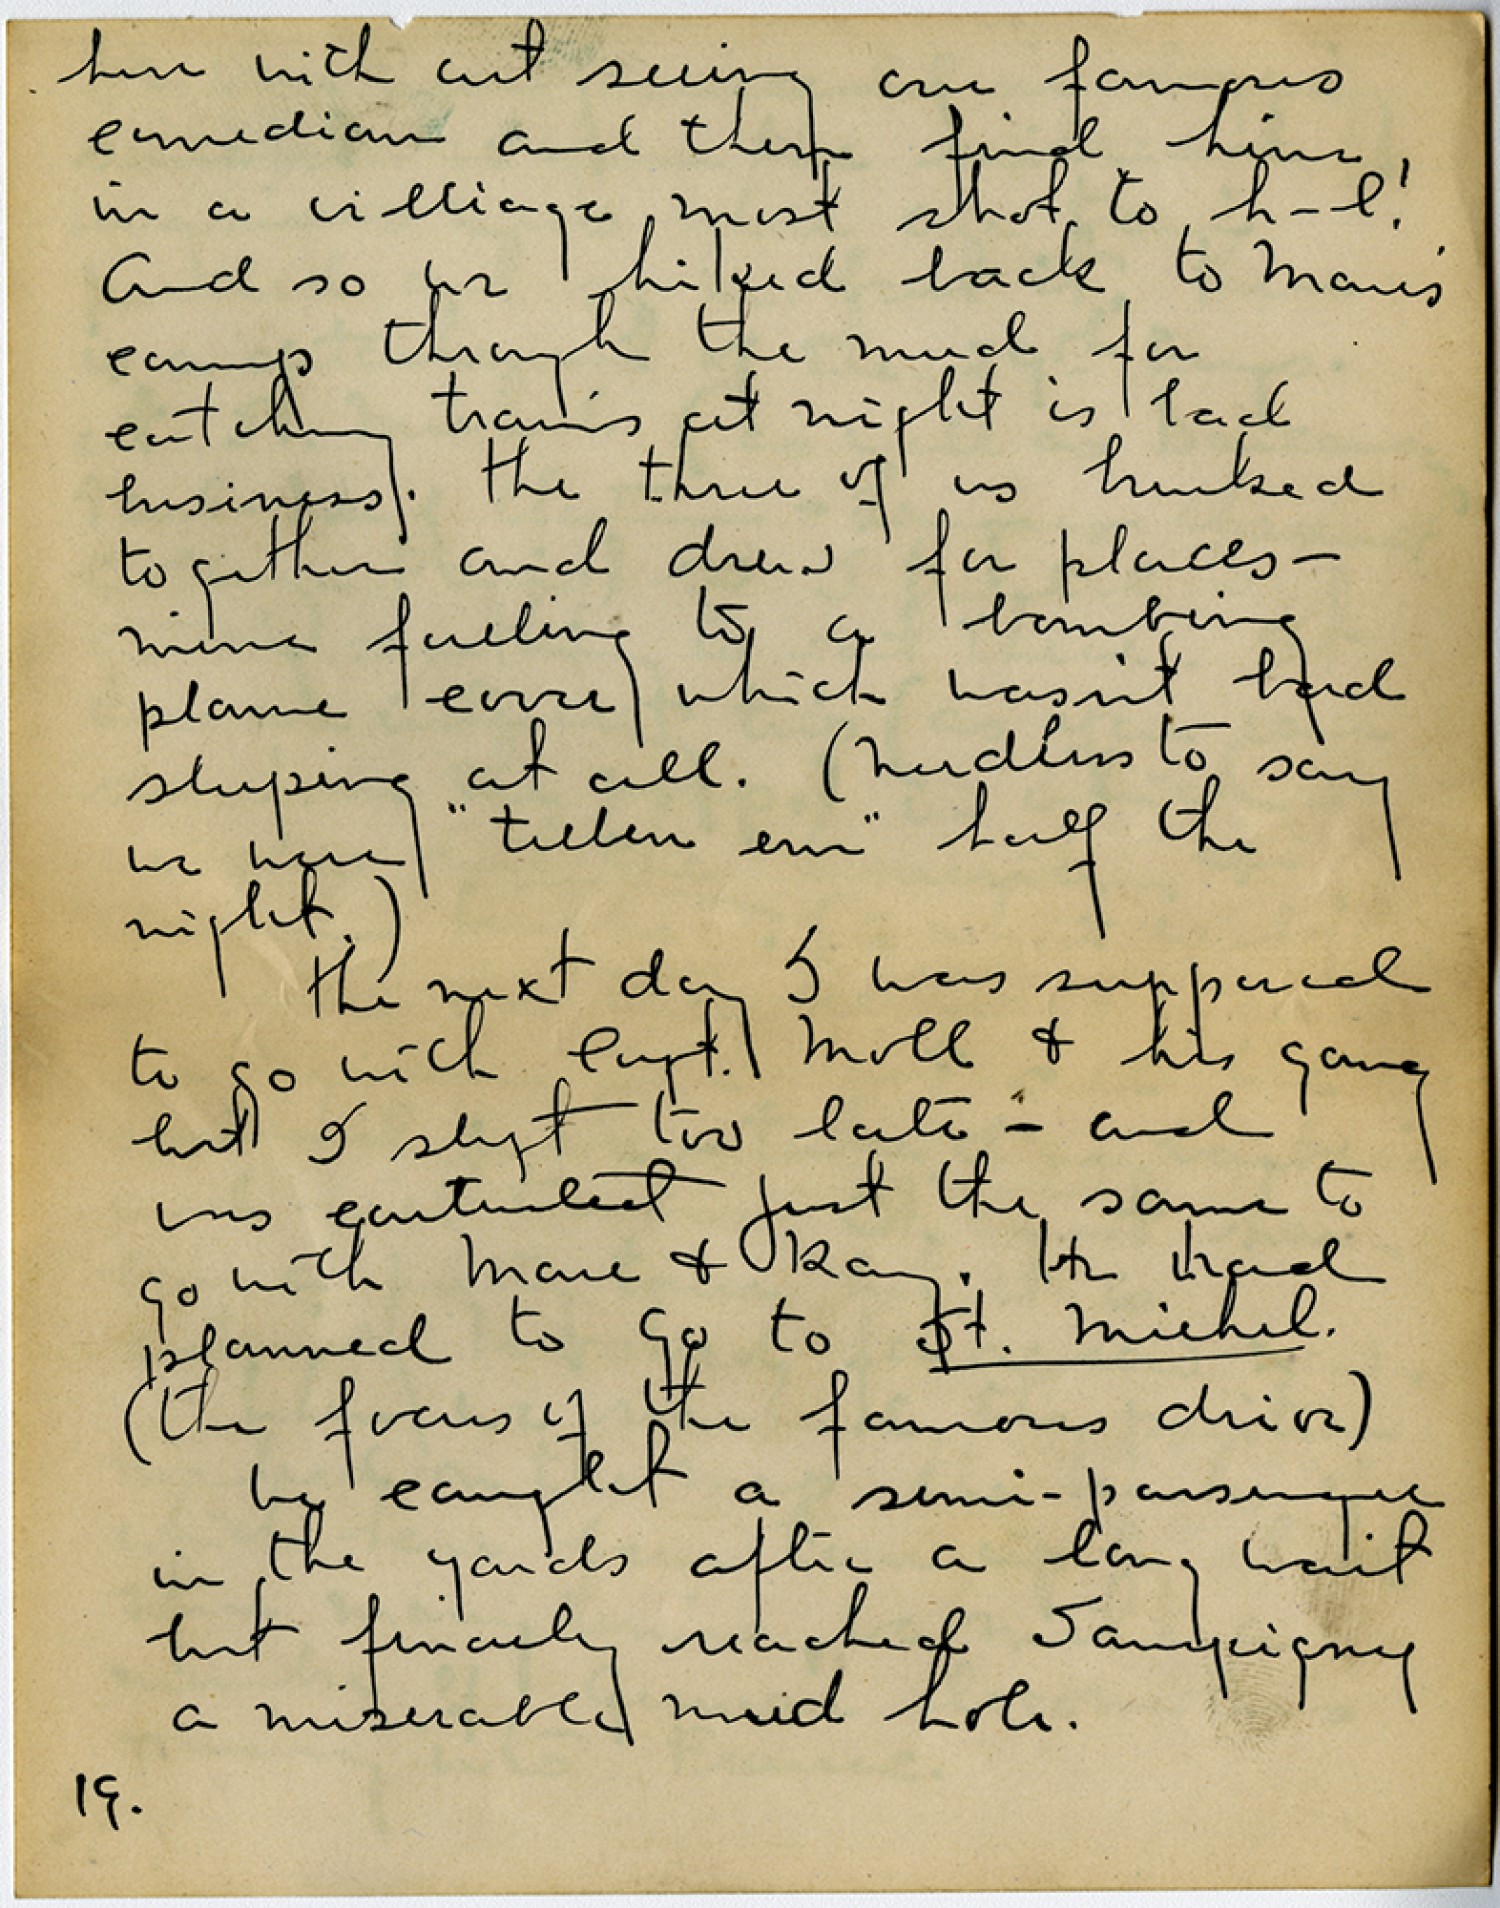 here with out seeing one famous
comedian and then find him
in a villiage most shot to h-l!
And so we hiked back to Mare's
camp through the mud for
catching trains at night is bad
business. The three of us bunked
together and drew for places —
mine falling to a bombing
plane cover which wasn't bad
sleeping at all. (Needless to say
we were "tellen em" half the
night.)
The next day I was supposed
to go with Capt. Moll & his gang
but I slept too late - and
was contented just the same to
go with Mare & Kay. He had
planned to go to St. Michel.
(the focus of the famous drive)
We caught a semi-passenger
in the yards after a long wait
but finally reached Sampigny
a miserable mud hole.
19.